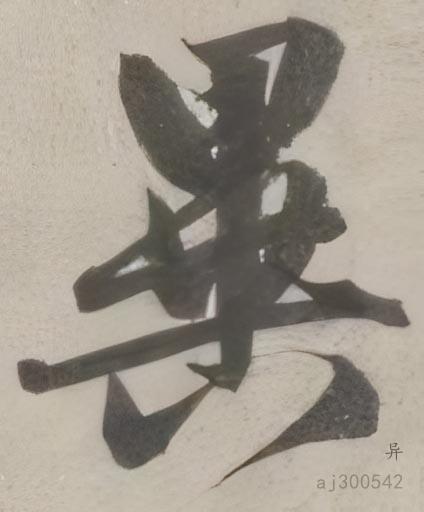 異
异
aj300542